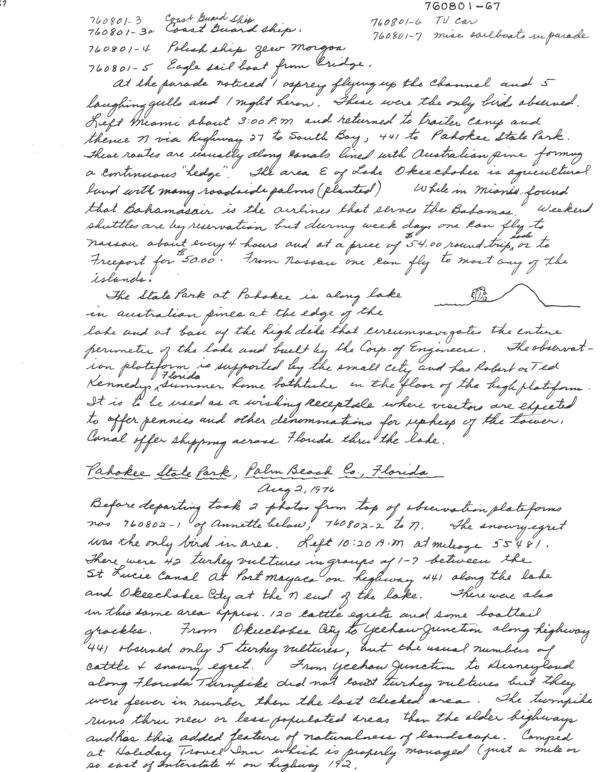 67
760801-67
760801-3 Coast Guard Ship
760801-3a Coast Guard ship.
760801-4 Polish ship zew morgoa
760801-5 Eagle sail boat from bridge.
760801-6 TV car
760801-7 misc sailboats in parade
At the parade noticed 1 osprey flying up the channel and 5
laughing gulls and 1 night heron. These were the only birds observed.
Left Miami about 3:00 P.M and returned to trailer camp and
thence N via Highway 27 to South Bay, 441 to Pahokee State Park.
These routes are usually along canals lined with Australian pine forming
a continuous "hedge". The area E of Lake Okeechobee is agricultural
land with many roadside palms (planted) While in Miami found
that Bahamasair is the airlines that serves the Bahamas. Weekend
shuttles are by reservation but during week days one can fly to
Nassau about every 4 hours and at a price of $54.00 round trip, or to
Freeport for $50.00. From Nassau one can fly to most any of the
islands.
The State Park at Pahokee is along lake
in australian pines at the edge of the
lake and at base of the high dike that circumnavigates the entire
perimeter of the lake and built by the Corp. of Engineers. The observat-
ion plateform is supported by the small city and has Robert or Ted
Kennedy's Florida summer home bathtube in the floor of the high platform.
It is to be used as a wishing receptacle where visitors are expected
to offer pennies and other denominations for upkeep of the tower.
Canal offer shipping across Florida thru the lake.
Pahokee State Park, Palm Beach Co., Florida
Aug 2, 1976
Before departing took 2 photos from top of observation plateforms
nos 760802-1 of Annette below, 760802-2 to N. The snowy egret
was the only bird in area. Left 10:20 A.M at mileage 55481.
There were 42 turkey vultures in groups of 1-7 between the
St Lucie Canal at Port Mayaca on highway 441 along the lake
and Okeechobee City at the N end of the lake. There were also
in this same area approx. 120 cattle egrets and some boattail
grackles. From Okeechobee City to Yeehaw Junction along highway
441 observed only 5 turkey vultures, but the usual numbers of
cattle & snowy egret. From Yeehaw Junction to Disneyland
along Florida Turnpike did not count turkey vultures but they
were fewer in number then the last checked area. The turnpike
runs thru new or less populated areas than the older highways
and has this added feature of naturalness of landscape. Camped
at Holiday Travel Inn which is properly managed (just a mile or
so east of Interstate 4 on highway 192.